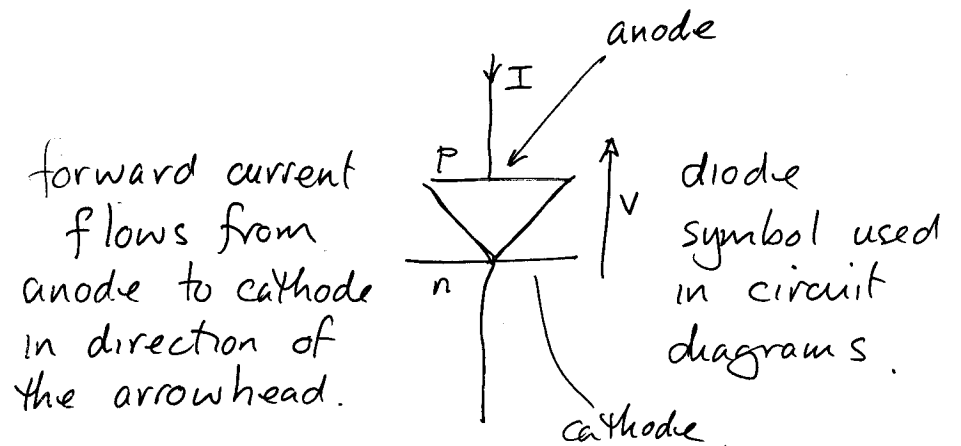 anode
I
forward current
flows from
anode to cathode
in direction of
the arrowhead.
p
n
V
diode
symbol used
in circuit
diagrams.
cathode